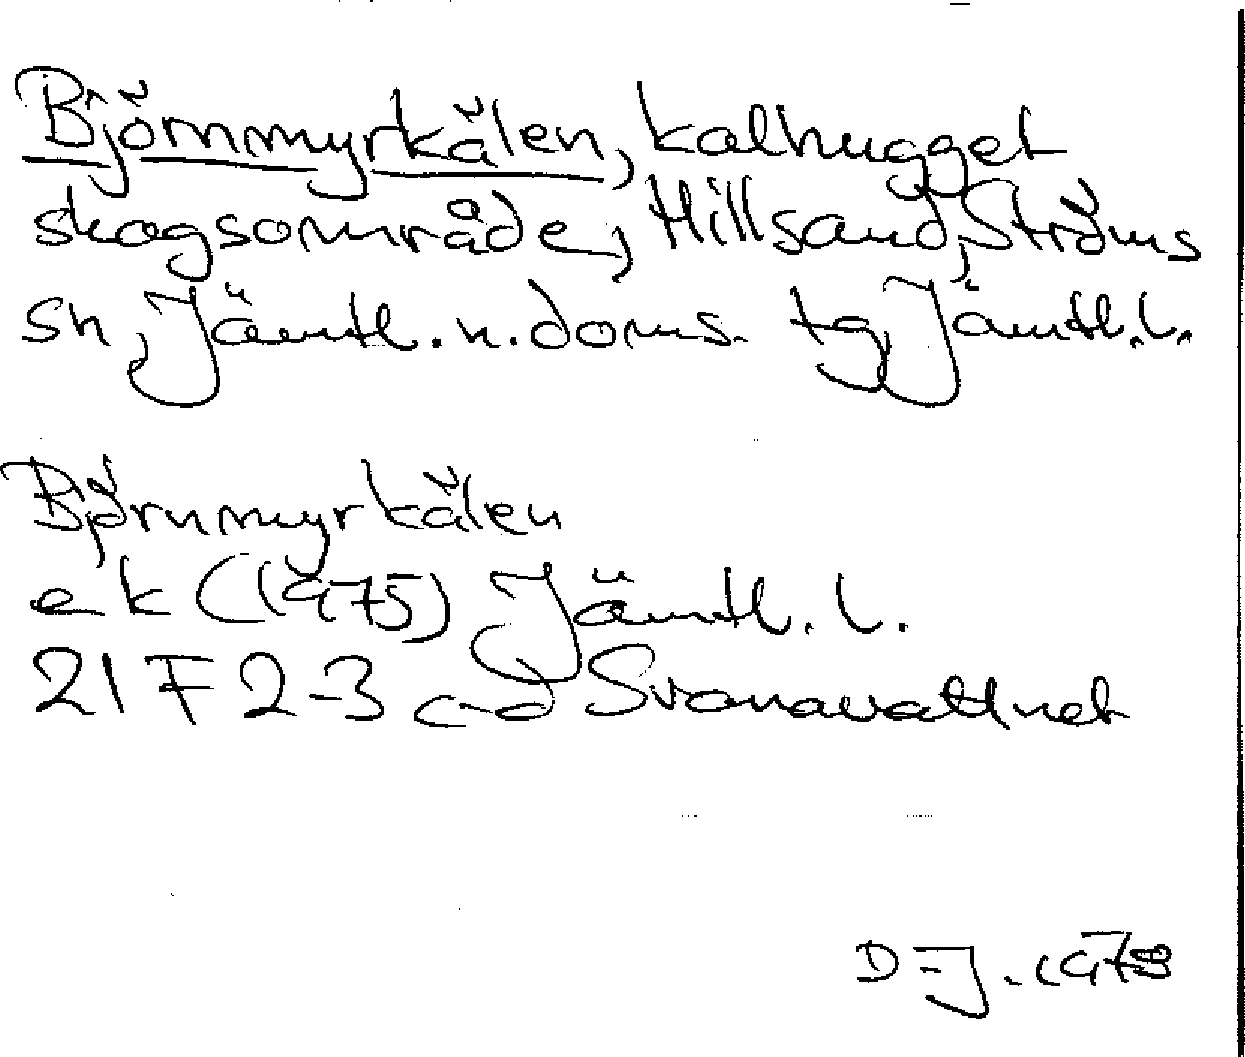 Björnmyrkälen, kalhugget
skogsområde, Hillsand, Ströms
sn, Jämtl. n. doms. tg, Jämtl. l.
Björnmyrkälen
ek (1975) Jämtl. l.
21 F 2-3 c-d Svanavattnet
D-J. 1978